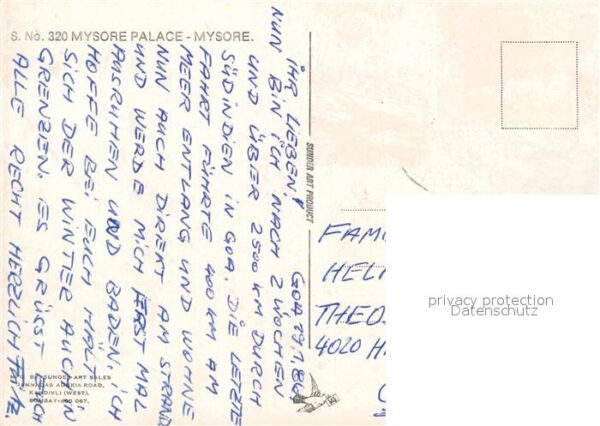 S. No. 320 MYSORE PALACE - MYSORE.
GOA, 29.1.86
IHR LIEBEN!
NUN BIN ICH NACH 2 WOCHEN
UND ÜBER 2500 KM DURCH
SÜDINDEN IN GOA. DIE LETZTE
FAHRT FÜHRTE 400 KM AM
MEER ENTLANG UND WOHNE
NUN AUCH DIREKT AM STRAND
UND WERDE MICH ERST MAL
AUSRUHEN UND BADEN. ICH
HOFFE BEI EUCH HÄLT
SICH DER WINTER AUCH IN
GRENZEN. ES GRÜSST EUCH
ALLE RECHT HERZLICH
SUNDER ART PRODUCT
FAMI
HEL
THEO
4020
MFG. BY SUNDER ART SALES
JAMNADAS ADUKIA ROAD,
KANDIVLI (WEST),
BOMBAY-400 067.
privacy protection
Datenschutz